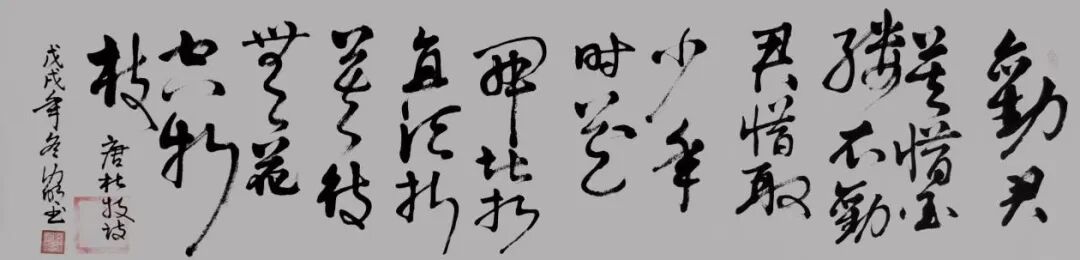 勸君
莫惜金
縷衣勸
君惜取
少年
时花
開堪折
直须折
莫待
無花
空折
枝
唐杜牧诗
戊戌年冬书